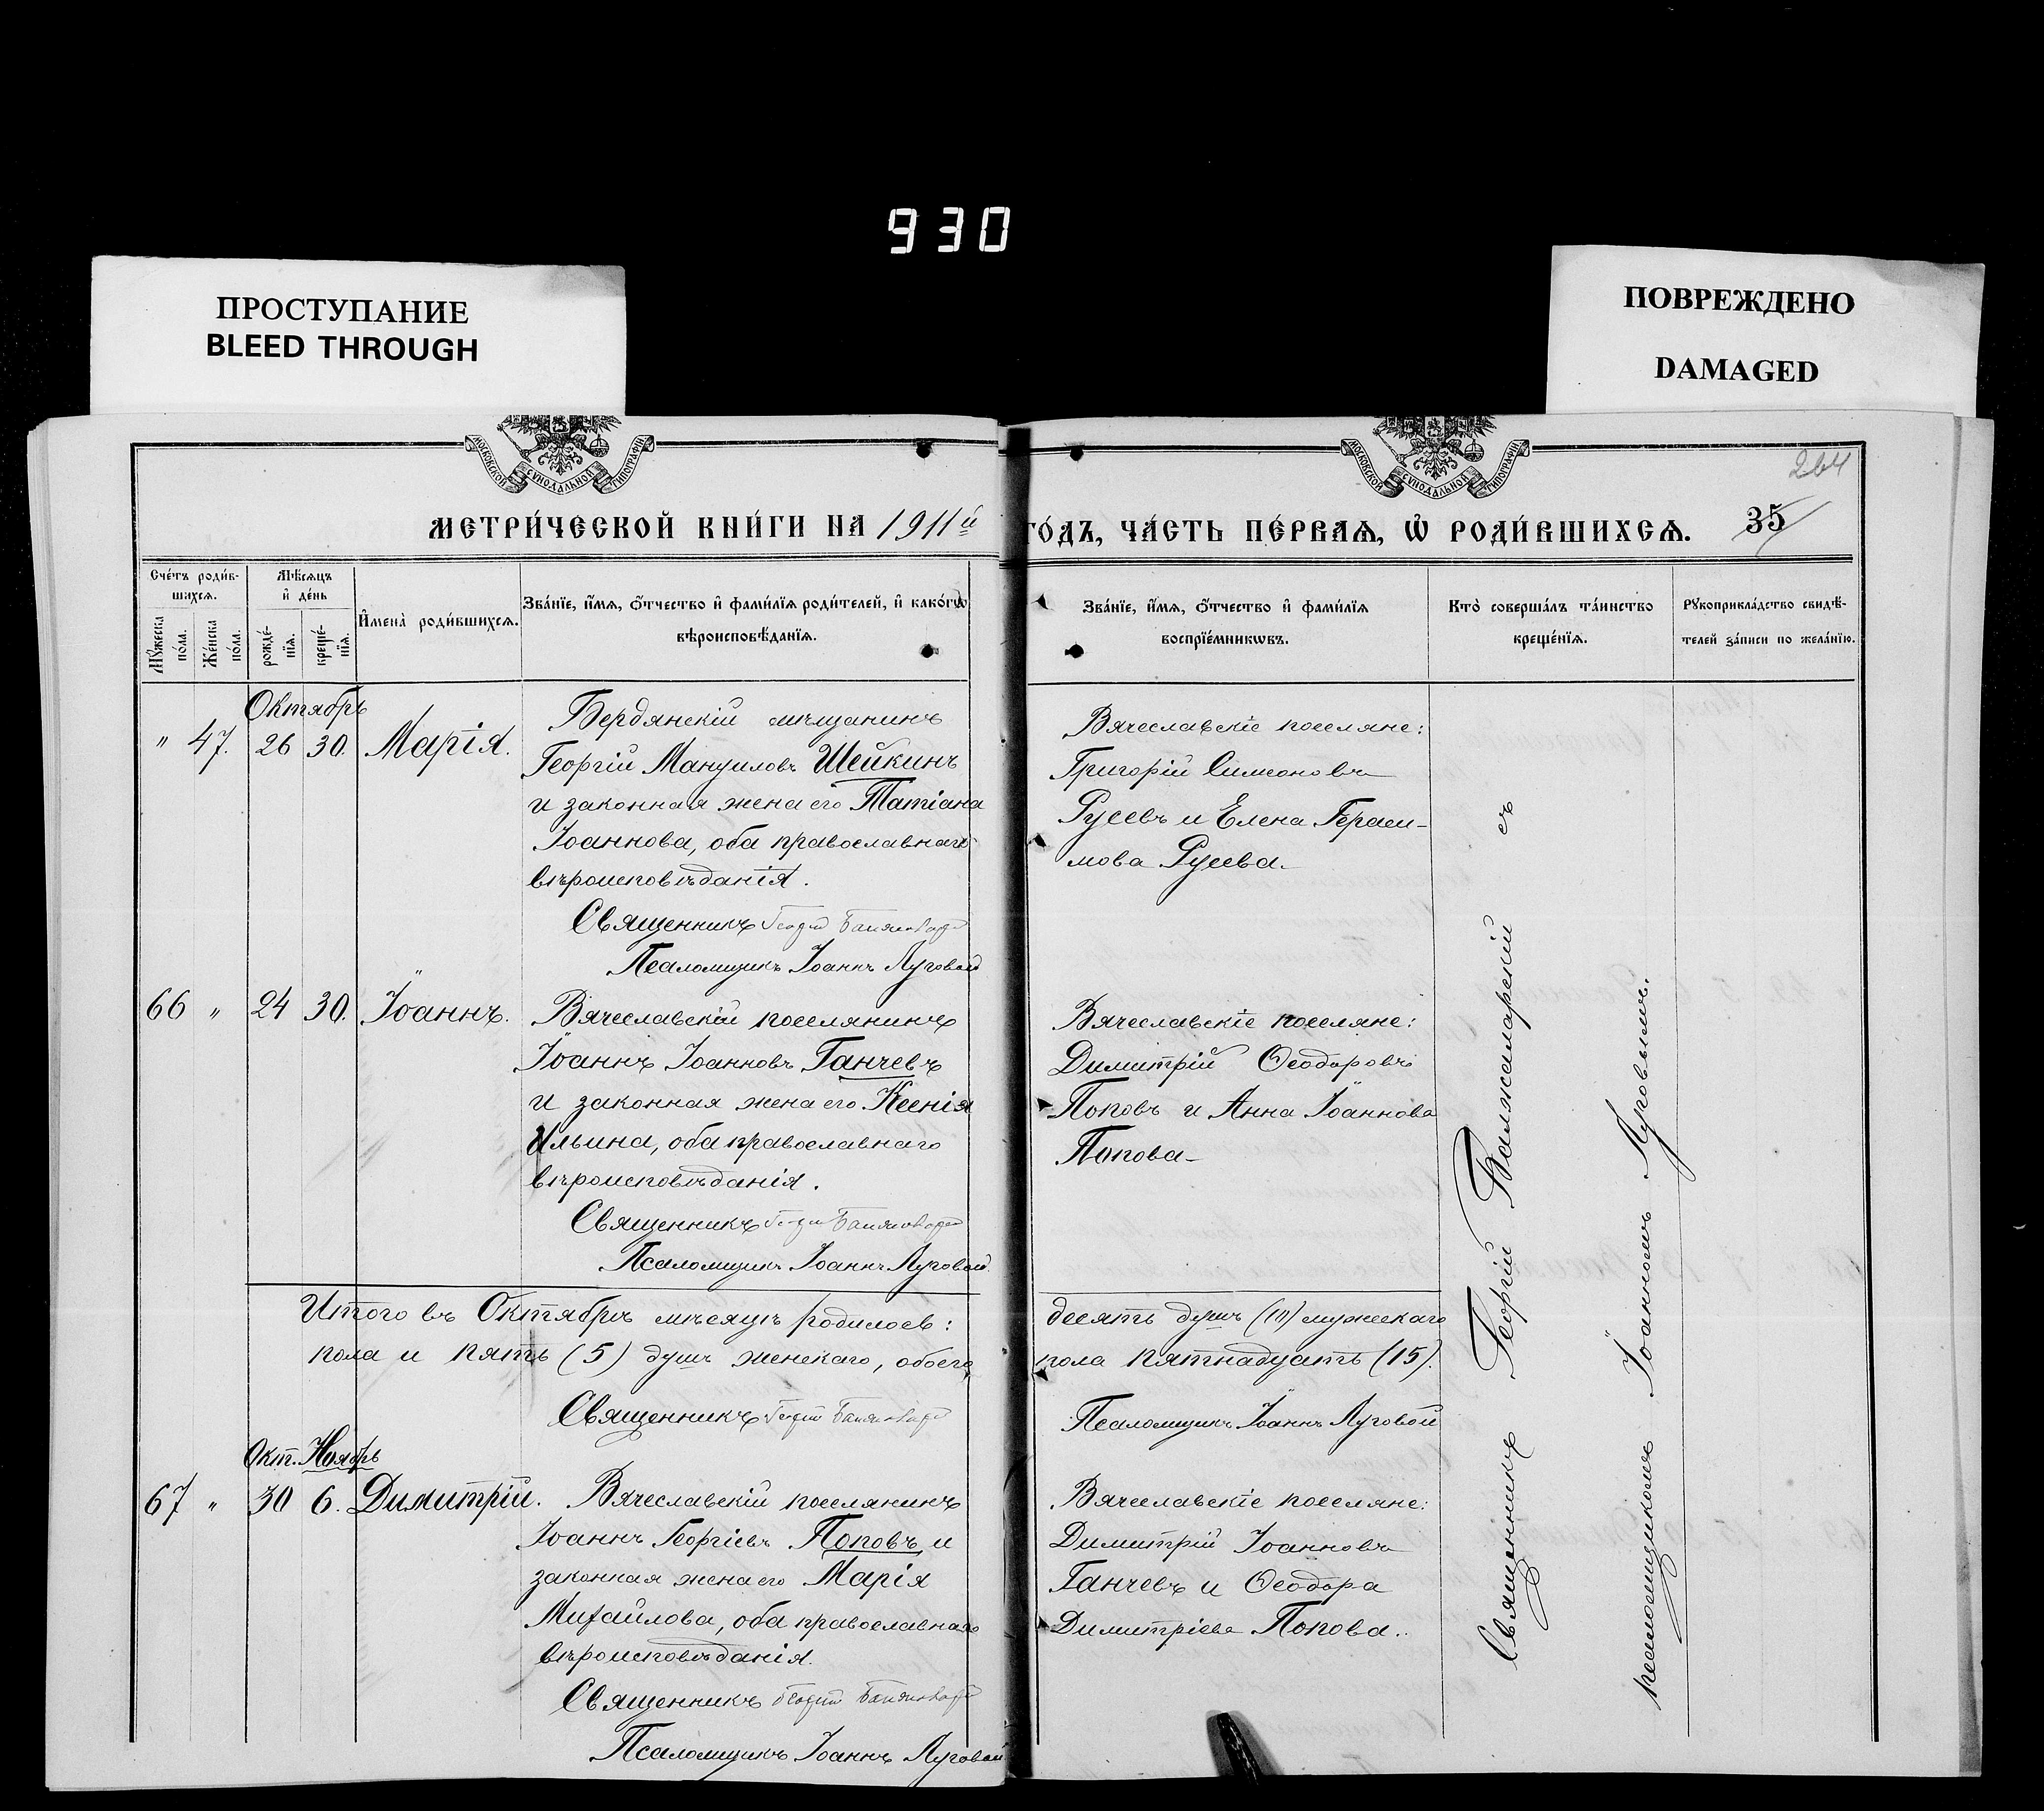 930
ПРОСТУПАНИЕ
BLEED THROUGH
ПОВРЕЖДЕНО
DAMAGED
МОСКОВСКОЙ СѴНОДАЛЬНОЙ ТИПОГРАФІИ
МОСКОВСКОЙ СѴНОДАЛЬНОЙ ТИПОГРАФІИ
264
МЕТРИ́ЧЕСКОЙ КНИ́ГИ НА 1911й ГО́ДЪ, ЧА́СТЬ ПЕ́РВАѦ, Ѡ҆ РОДИ́ВШИХСѦ. 35
Сче́тъ роди́в-
шихсѧ.
Мꙋ́жеска по́ла.
Же́нска по́ла.
Мѣ́сѧцъ
и҆ де́нь
рожде́-
нїѧ.
креще́-
нїѧ.
И҆мена̀ роди́вшихсѧ.
Зва́нїе, и҆́мѧ, ѻ҆́тчество и҆ фами́лїѧ роди́телей, и҆ како́гѡ
вѣроисповѣ́данїѧ.
Зва́нїе, и҆́мѧ, ѻ҆́тчество и҆ фами́лїѧ
воспрїе́мникѡвъ.
Кто̀ соверша́лъ та́инство
креще́нїѧ.
Рꙋкоприкла́дство свидѣ́-
телей за́писи по жела́нїю.
Октябрь
" 47. 26 30. Марія.
Бердянскій мѣщанинъ
Георгій Мануиловъ Шейкинъ
и законная жена его Татіана
Іоаннова, оба православнаго
вѣроисповѣданія.
Священникъ Георгій
Псаломщикъ Іоаннъ Луговой
Вячеславскіе поселяне:
Григорій Симеоновъ
Русевъ и Елена Гераси-
мова Русева.
66 " 24 30. Іоаннъ.
Вячеславскій поселянинъ
Іоаннъ Іоанновъ Ганчевъ
и законная жена его Ксенія
Ильина, оба православнаго
вѣроисповѣданія.
Священникъ Георгій
Псаломщикъ Іоаннъ Луговой.
Вячеславскіе поселяне:
Димитрій Ѳеодоровъ
Поповъ и Анна Іоаннова
Попова
Итого въ Октябрѣ мѣсяцѣ родилось: десять душъ (10) мужескаго
пола и пять (5) душъ женскаго, обоего пола пятнадцать (15).
Священникъ Георгій
Псаломщикъ Іоаннъ Луговой
Окт. Ноябрь
67 " 30 6. Димитрій.
Вячеславскій поселянинъ
Іоаннъ Георгіевъ Поповъ и
законная жена его Марія
Михайлова, оба православнаго
вѣроисповѣданія.
Священникъ Георгій
Псаломщикъ Іоаннъ Луговой
Вячеславскіе поселяне:
Димитрій Іоанновъ
Ганчевъ и Ѳеодора
Димитріева Попова.
Священникъ Георгій съ
псаломщикомъ Іоанномъ Луговымъ.